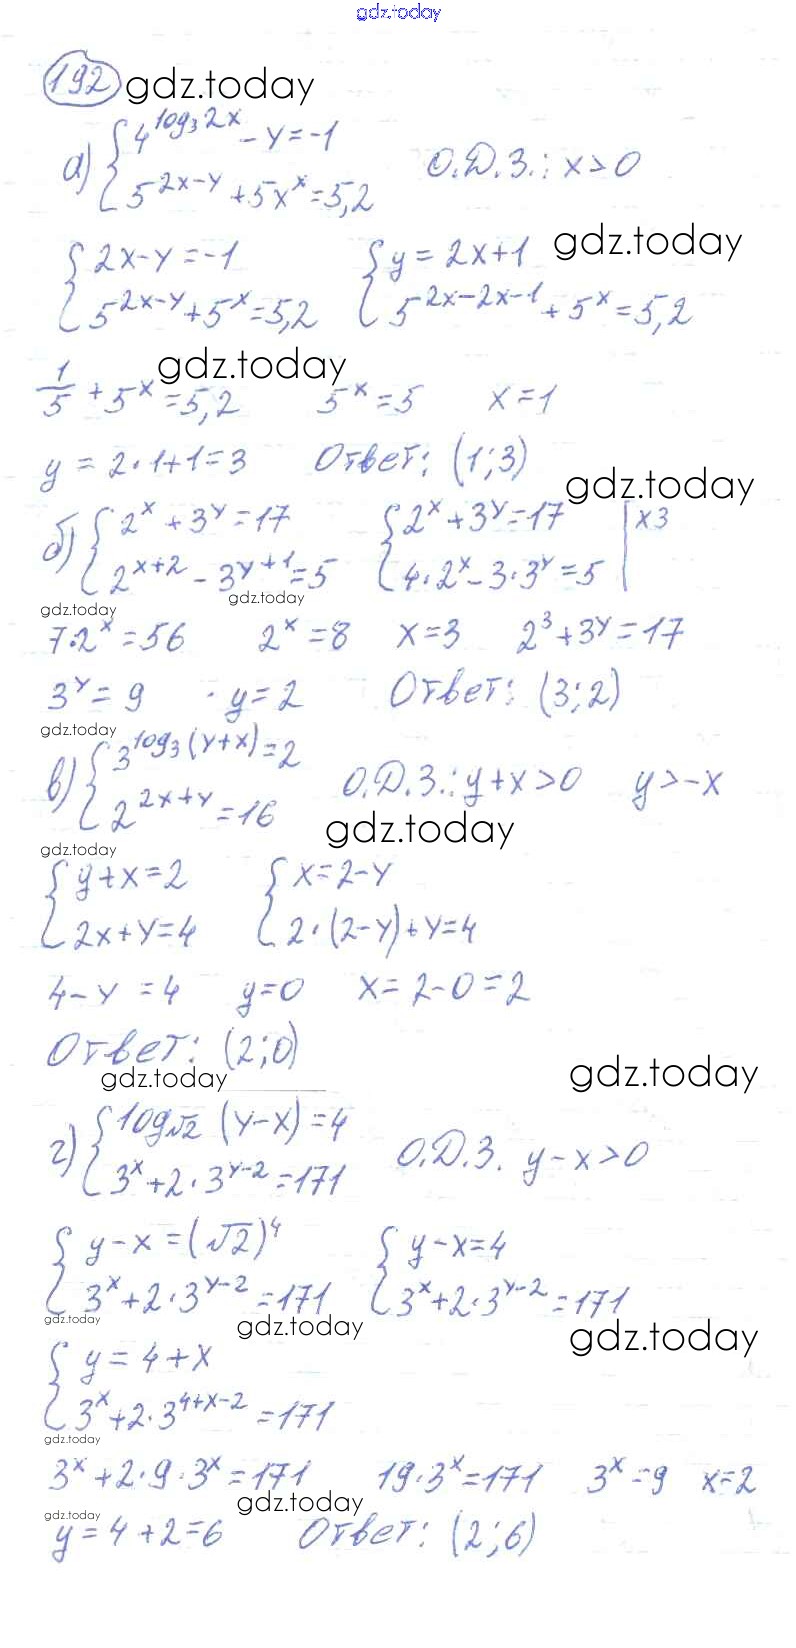 gdz.today
192 gdz.today
а) { 4^log₃2x - y = -1 О.Д.З.: x > 0
5^2x-y + 5x^x = 5,2
{ 2x - y = -1 { y = 2x + 1 gdz.today
5^2x-y + 5^x = 5,2 5^2x-2x-1 + 5^x = 5,2
gdz.today
1/5 + 5^x = 5,2 5^x = 5 x = 1
y = 2·1 + 1 = 3 Ответ: (1; 3)
gdz.today
б) { 2^x + 3^y = 17 { 2^x + 3^y = 17 | x3
2^x+2 - 3^y+1 = 5 4·2^x - 3·3^y = 5
gdz.today gdz.today
7·2^x = 56 2^x = 8 x = 3 2^3 + 3^y = 17
3^y = 9 · y = 2 Ответ: (3; 2)
gdz.today
в) { 3^log₃(y+x) = 2 О.Д.З.: y + x > 0 y > -x
2^2x+y = 16
gdz.today gdz.today
{ y + x = 2 { x = 2 - y
2x + y = 4 2·(2 - y) + y = 4
4 - y = 4 y = 0 x = 2 - 0 = 2
Ответ: (2; 0)
gdz.today gdz.today
г) { log√2 (y - x) = 4 О.Д.З. y - x > 0
3^x + 2·3^y-2 = 171
{ y - x = (√2)^4 { y - x = 4
3^x + 2·3^y-2 = 171 3^x + 2·3^y-2 = 171
gdz.today gdz.today gdz.today
{ y = 4 + x
3^x + 2·3^4+x-2 = 171
gdz.today
3^x + 2·9·3^x = 171 19·3^x = 171 3^x = 9 x = 2
gdz.today gdz.today
y = 4 + 2 = 6 Ответ: (2; 6)